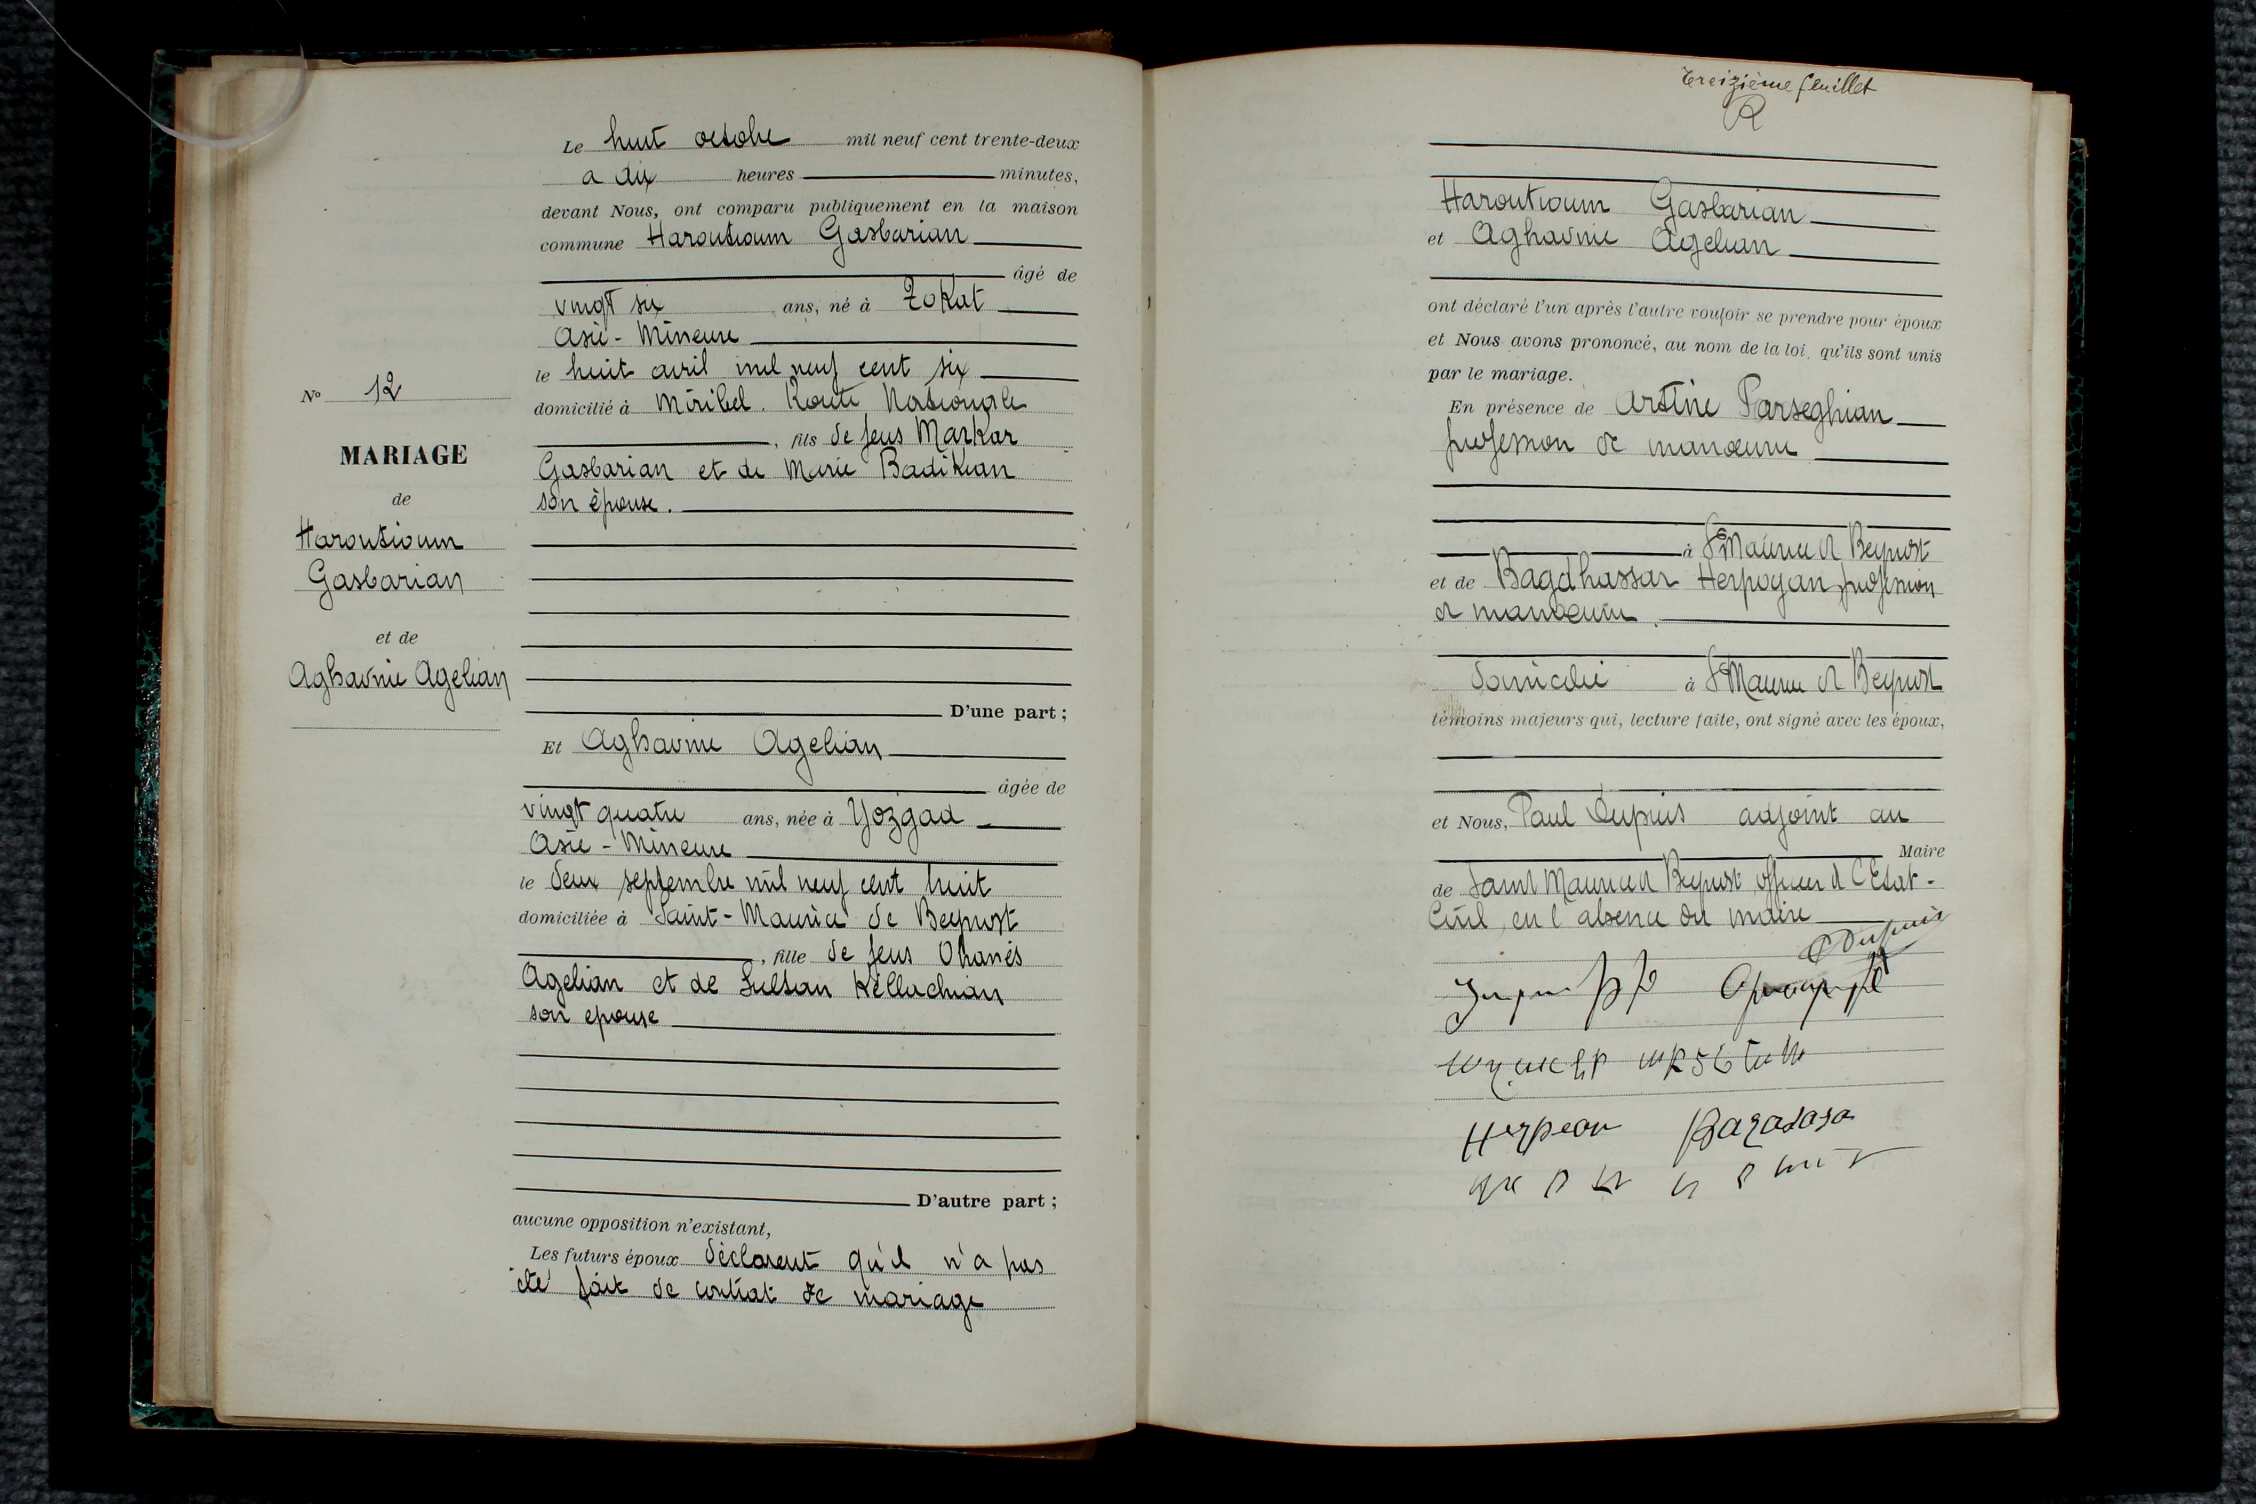 Le huit octobre mil neuf cent trente-deux
a dix heures minutes,
devant Nous, ont comparu publiquement en la maison
commune Haroutioum Gasbarian
âgé de
vingt six ans, né à Tokat
Asie-Mineure
le huit avril mil neuf cent six
domicilié à Miribel. Route Nationale
, fils de feus Markar
Gasbarian et de Marie Badikian
son épouse.
D'une part ;
Nº 12
MARIAGE
de
Haroutioum
Gasbarian
et de
Aghavnie Agelian
Et Aghavnie Agelian
âgée de
vingt quatre ans, née à Yozgad
Asie-Mineure
le deux septembre mil neuf cent huit
domiciliée à Saint-Maurice de Beynost
, fille de feus Ohanés
Agelian et de Sultan Kellachian
son epouse
D'autre part ;
aucune opposition n'existant,
Les futurs époux déclarent qu'il n'a pas
été fait de contrat de mariage
treizième feuillet
Haroutioum Gasbarian
et Aghavnie Agelian
ont déclaré l'un après l'autre vouloir se prendre pour époux
et Nous avons prononcé, au nom de la loi, qu'ils sont unis
par le mariage.
En présence de Artine Parseghian
profession de manœuvre
à St Maurice d Beynost
et de Bagdhassar Herpoyan, profession
d manœuvre.
domicilié à St Maurice d Beynost
témoins majeurs qui, lecture faite, ont signé avec les époux,
et Nous, Paul Dupuis adjoint au
Maire
de Saint Maurice d Beynost officier d l'Etat-
Civil, en l'absence du maire
P Dupuis
Herpean